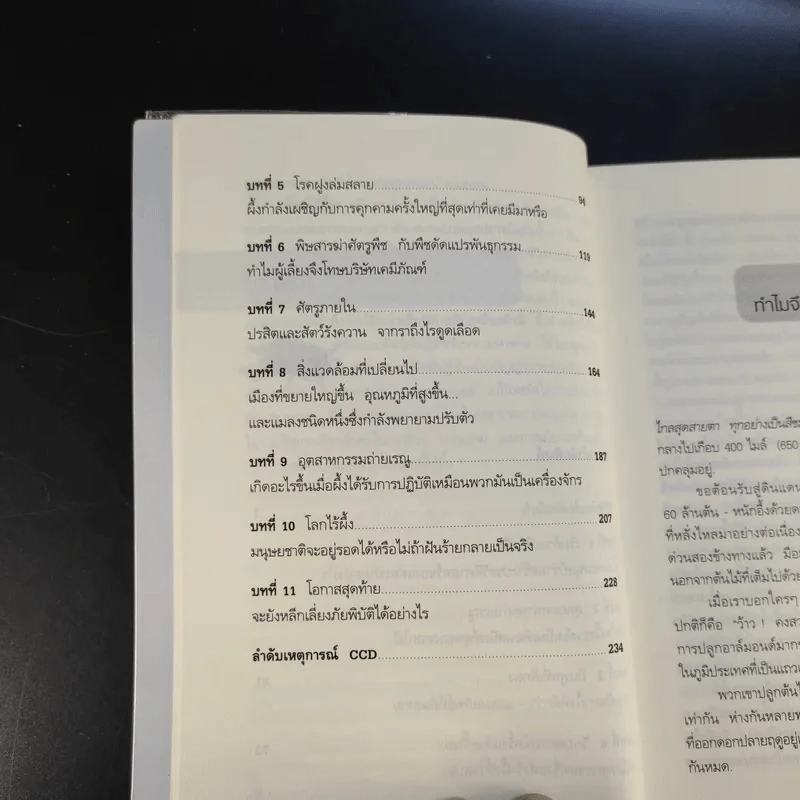 บทที่ 5 โรคฝูงล่มสลาย 94
ผึ้งกำลังเผชิญกับการคุกคามครั้งใหญ่ที่สุดเท่าที่เคยมีมาหรือ
บทที่ 6 พิษสารฆ่าศัตรูพืช กับพืชดัดแปรพันธุกรรม 119
ทำไมผู้เลี้ยงจึงโทษบริษัทเคมีภัณฑ์
บทที่ 7 ศัตรูภายใน 144
ปรสิตและสัตว์รังควาน จากราถึงไรดูดเลือด
บทที่ 8 สิ่งแวดล้อมที่เปลี่ยนไป 164
เมืองที่ขยายใหญ่ขึ้น อุณหภูมิที่สูงขึ้น...
และแมลงชนิดหนึ่งซึ่งกำลังพยายามปรับตัว
บทที่ 9 อุตสาหกรรมถ่ายเรณู 187
เกิดอะไรขึ้นเมื่อผึ้งได้รับการปฏิบัติเหมือนพวกมันเป็นเครื่องจักร
บทที่ 10 โลกไร้ผึ้ง 207
มนุษยชาติจะอยู่รอดได้หรือไม่ถ้าฝันร้ายกลายเป็นจริง
บทที่ 11 โอกาสสุดท้าย 228
จะยังหลีกเลี่ยงภัยพิบัติได้อย่างไร
ลำดับเหตุการณ์ CCD 234
ทำไมจึ
ไกลสุดสายตา ทุกอย่างเป็นสีช
กลางไปเกือบ 400 ไมล์ (650
ปกคลุมอยู่
ขอต้อนรับสู่ดินแดน
60 ล้านต้น - หนักอึ้งด้วยด
ที่หลั่งไหลมาอย่างต่อเนื่อง
ด่วนสองข้างทางแล้ว มือ
นอกจากต้นไม้ที่เต็มไปด้วย
เมื่อเราบอกใครๆ
ปกติก็คือ "ว้าว! คงส
การปลูกอาล์มอนด์มาก
ในภูมิประเทศที่เป็นแถว
พวกเขาปลูกต้นไ
เท่ากัน ห่างกันหลายฟ
ที่ออกดอกปลายฤดูอยู่
กันหมด.